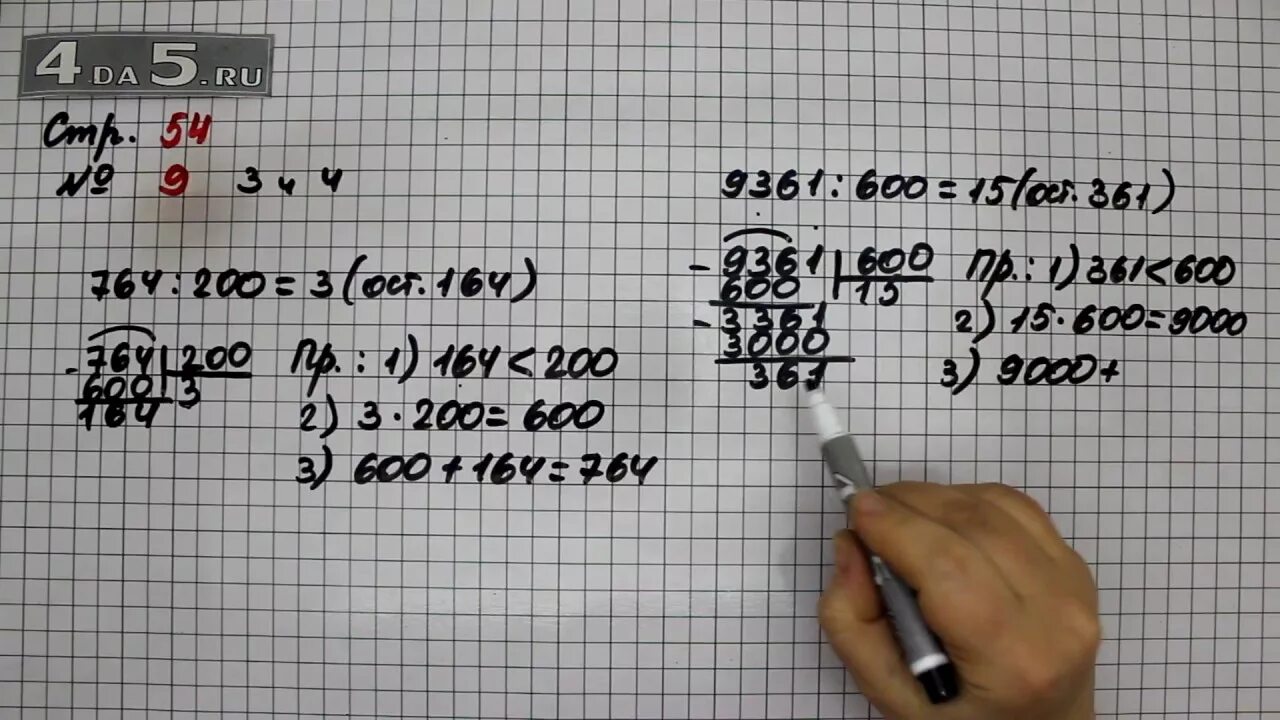 4DA5.RU
Стр. 54
№ 9 3 и 4
764 : 200 = 3 (ост. 164)
- 764 200
600 3
164
Пр.: 1) 164 < 200
2) 3 · 200 = 600
3) 600 + 164 = 764
9361 : 600 = 15 (ост. 361)
- 9361 600
600 15
- 3361
3000
361
Пр.: 1) 361 < 600
2) 15 · 600 = 9000
3) 9000 +